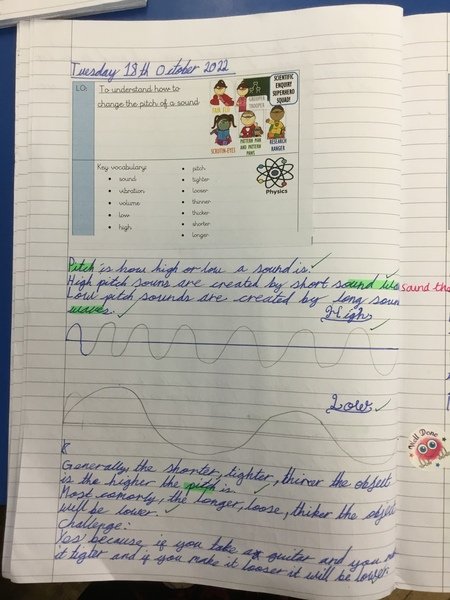 Tuesday 18th October 2022
LO: To understand how to
change the pitch of a sound
FAIR TEST
GROUPER
TROOPER
SCIENTIFIC
ENQUIRY
SUPERHERO
SQUAD!
SCRUTIN-EYES
PATTERN MAN
AND PATTERN
PAWS
RESEARCH
RANGER
Key vocabulary:
sound
vibration
volume
low
high
pitch
tighter
looser
thinner
thicker
shorter
longer
Physics
Pitch is how high or low a sound is.
High pitch souns are created by short sound
Low pitch sounds are created by long soun
waves.
High
Low
Well Done
Generally, the shorter, tighter, thiner the object
is the higher the pitch is.
Most comonly, the longer, loose, thiker the object
will be lower.
Challenge:
Yes because if you take a guitar and you
it tigter and if you make it looser it will be lower.